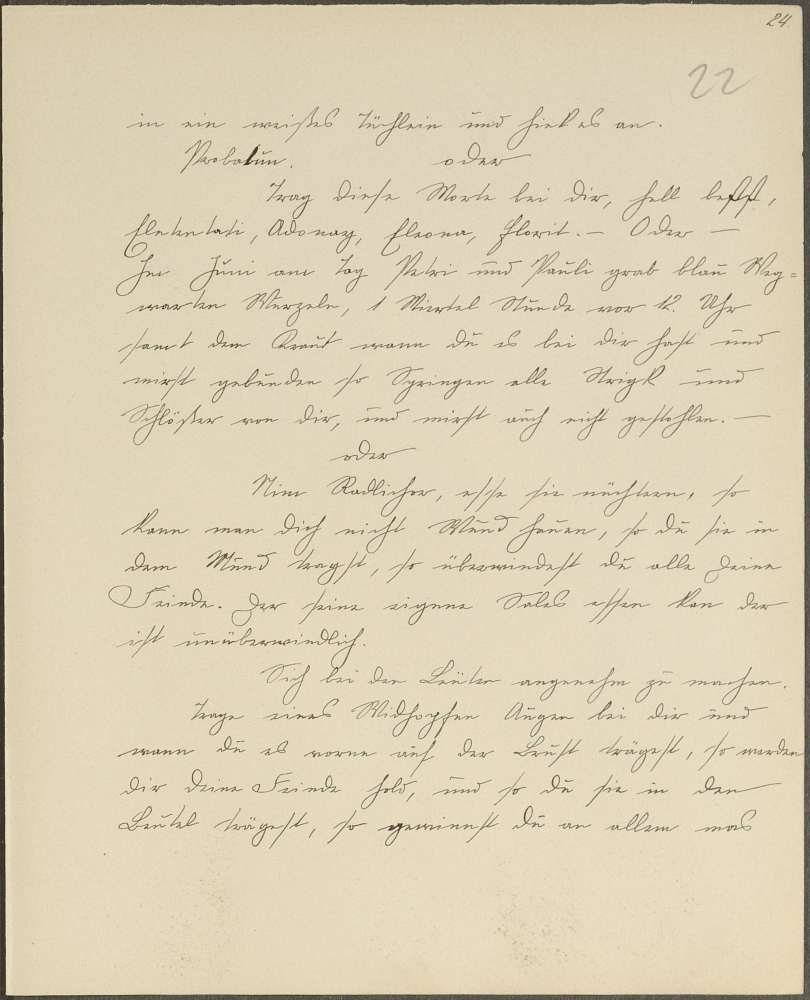 24.
22
in ein weißes Tüchlein und hick es an.
Probatum. oder
Trag diese Worte bei dir, hell
Eletentati, Adonay, Eleona, Florit. — Oder —
Im Juni am Tag Petri und Pauli grab blau Weg=
warten Wurzeln, 1 Viertel Stunde vor 12. Uhr
samt dem Kraut wann du es bei dir hast und
wirst gebunden so Springen alle Strigk und
Schlößer von dir, und wirst auch nicht gestohlen. —
oder
Nim Radlicher, esse sie nüchtern, so
kann man dich nicht Wund hauen, so du sie in
dem Mund tragst, so überwindest du alle Deine
Feinde. Der seine eigene Sales essen kan der
ist unüberwindlich.
Sich bei den Leuten angenehm zu machen.
Trage eines Widhopfen Augen bei dir und
wann du es vorne auf der Brust trägest, so werden
dir deine Feinde hold, und so du sie in den
Beutel trägest, so gewinnst du an allem was